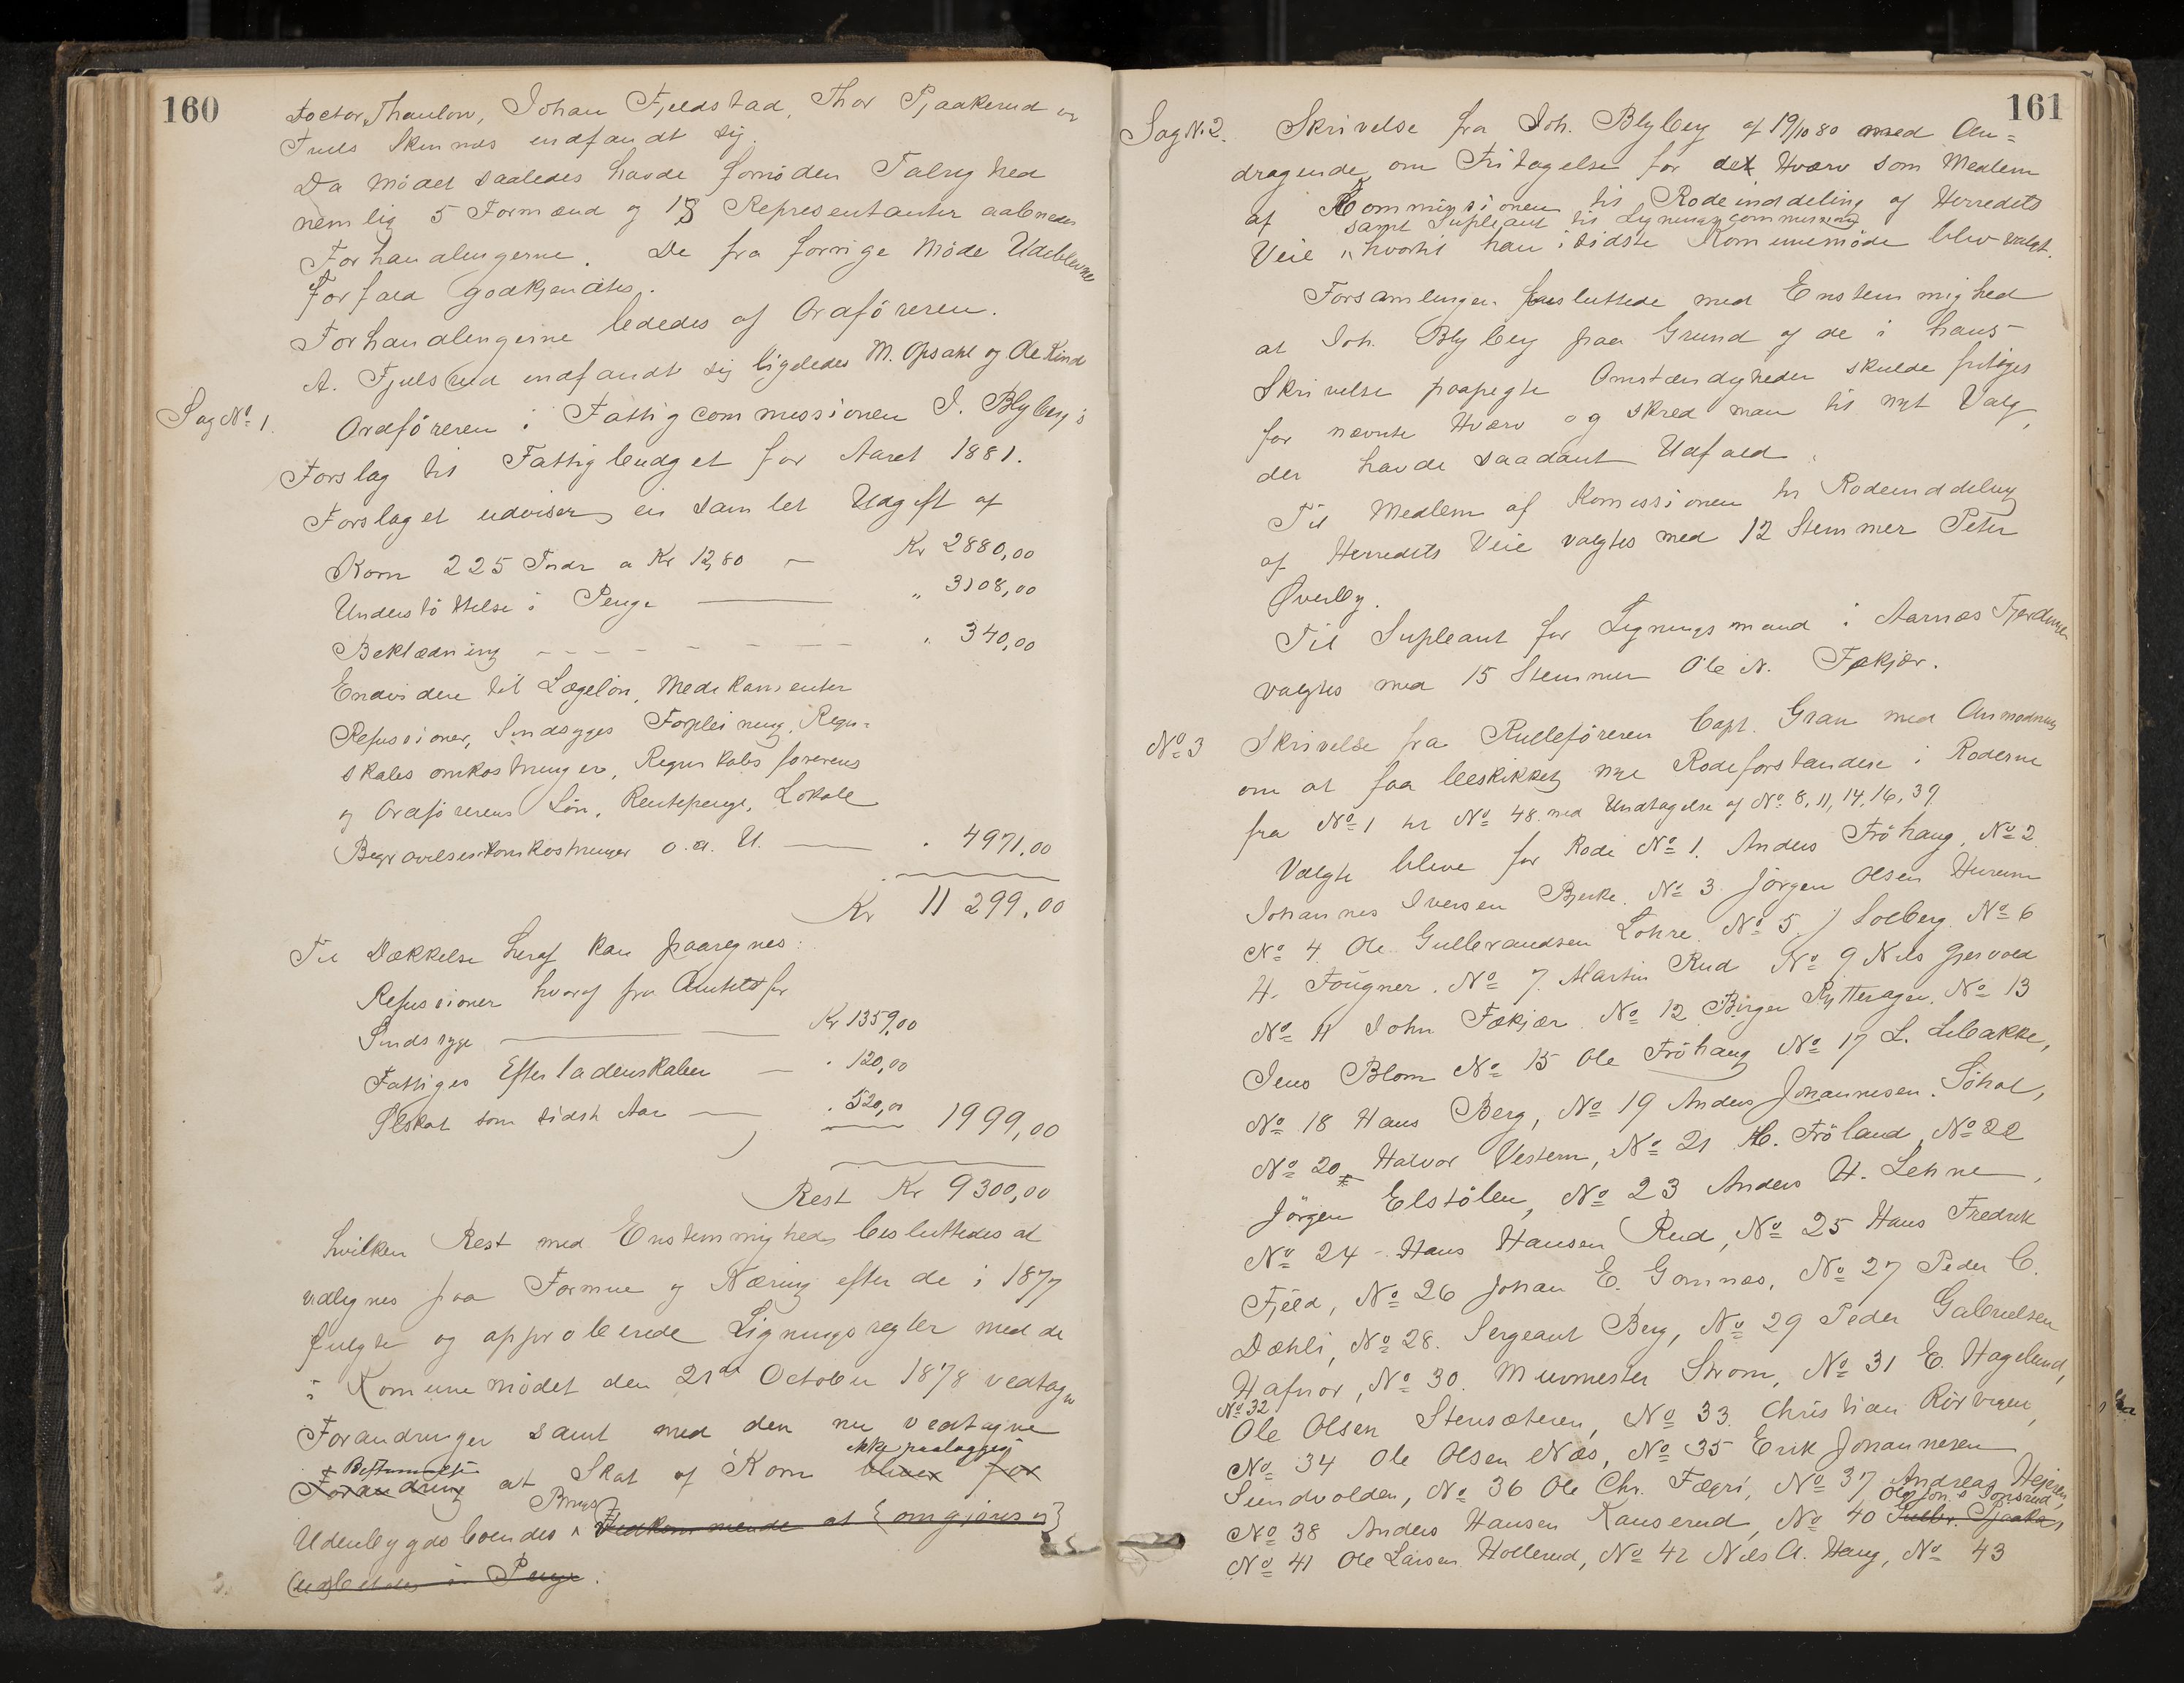 160
Doctor Thaulow, Johan Fjeldstad, Thor Pjaakerud og
Truls Skinnes indfandt sig.
Da Mödet saaledes havde fornöden Talrighed
nemlig 5 Formænd og 18 Representanter aabnedes
Forhandlingerne. De fra forrige Möde Udeblevnes
Forfald godkjendtes.
Forhandlingerne lededes af Ordföreren.
A. Fjulsrud indfandt sig ligeledes M. Opsahl og Ole Kind
Sag No. 1. Ordföreren i Fattigcommissionen J. Blybergs
Forslag til Fattigbudget for Aaret 1881.
Forslaget udviser en samlet Udgift af
Korn 225 Tndr a Kr 12,80 — Kr 2880,00
Understöttelse i Penge — " 3108,00
Beklædning - - - - - - " 340,00
Endvidere til Lægelön, Medikamenter
Refusioner, Sindsyges Forpleining, Regn=
skabs omkostninger, Regnskabsförerens
og Ordförerens Lön, Rentepenge, Lokale
Begravelsesomkostninger o.a. U. — " 4971,00
Kr 11 299,00
Til Dækkelse heraf kan paaregnes:
Refusioner hvoraf fra Amtet for
Sindssyge — Kr 1359,00
Fattiges Efterladenskaber — " 120,00
Ilskat som sidste Aar — " 520,00 1999,00
Rest Kr 9300,00
hvilken Rest med Enstemmighed besluttedes at
udlignes paa Formue og Næring efter de i 1877
fulgte og approberede Ligningsregler med de
i Kommunemödet den 21de October 1878 vedtagne
Forandringer samt med den nu vedtagne
Bestemmelse ikke paalægges
Forandring at Skat af Korn bliver for
Brug
Udenbygdsboendes Vedkommende at {omgjöres og}
udbetales i Penge.
161
Sag N. 2. Skrivelse fra Joh. Blyberg af 19/10 80 med An=
dragende om Fritagelse for det Hværv som Medlem
af Kommissionen til Rodeinddeling af Herredets
samt Supleant til Ligningscommissionen
Veie hvortil han i sidste Kommunemöde blev valgt.
Forsamlingen besluttede med Enstemmighed
at Joh. Blyberg paa Grund af de i hans
Skrivelse paapegte Omstændigheder skulde fritages
for nævnte Hværv og skred man til nyt Valg,
der havde saadant Udfald:
Til Medlem af Komissionen til Rodeinddeling
af Herredets Veie valgtes med 12 Stemmer Peter
Øverby.
Til Supleant for Ligningsmand i Aarnæs Fjerdingen
valgtes med 15 Stemmer Ole N. Fækjær.
No 3 Skrivelse fra Rulleföreren Capt. Gran med Anmodning
om at faa beskikket nye Rodeforstandere i Roderne
fra No 1 til No 48 med Undtagelse af No 8, 11, 14, 16, 39
Valgte bleve for Rode No 1. Anders Fröhaug, No 2
Johannes Iversen Bjerke. No 3 Jörgen Olsen Hurum
No 4 Ole Gulbrandsen Lohre. No 5. J Solberg. No 6
H. Fougner. No 7. Martin Rud No 9 Nils Gjesvold
No 11 John Fækjær No 12 Birger Rytterager. No 13
Jens Blom No 15 Ole Fröhaug No 17 L. Libakke,
No 18 Hans Berg, No 19 Anders Johannesen Söhol,
No 20 Halvor Vestern, No 21 H. Fröland, No 22
Jörgen Elstölen, No 23 Anders H. Lehne,
No 24 - Hans Hansen Rud, No 25 Hans Fredrik
Fjeld, No 26 Johan E. Gomnæs, No 27 Peder C.
Dæhli, No 28. Sergeant Berg, No 29 Peder Gabrielsen
Hafnor, No 30. Murmester Strom, No 31 E. Hagelund,
No 32
Ole Olsen Stensæteren, No 33. Christian Rörvigen,
No 34 Ole Olsen Næs, No 35 Erik Johannesen
Sundvolden, No 36 Ole Chr. Fægri, No 37 Andreas Hejesen,
Ole Jon. Jonsrud,
No 38 Anders Hansen Kanserud, No 40 Gulbr. Pjaaka,
No 41 Ole Larsen Hollerud, No 42 Nils A. Haug, No 43